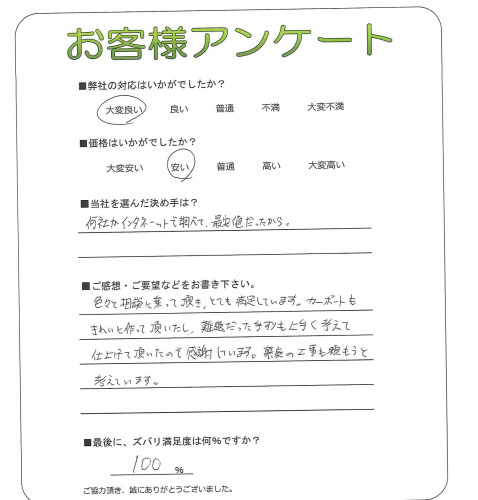 お客様アンケート
■弊社の対応はいかがでしたか？
大変良い 良い 普通 不満 大変不満
■価格はいかがでしたか？
大変安い 安い 普通 高い 大変高い
■当社を選んだ決め手は？
何社かインタネットで調べて、最安値だったから。
■ご感想・ご要望などをお書き下さい。
色々と相談に乗って頂き、とても満足しています。カーポートも
きれいに作って頂いたし、難題だった手すりも上手く考えて
仕上げて頂いたので感謝しています。裏庭の工事も頼もうと
考えています。
■最後に、ズバリ満足度は何%ですか？
100 %
ご協力頂き、誠にありがとうございました。